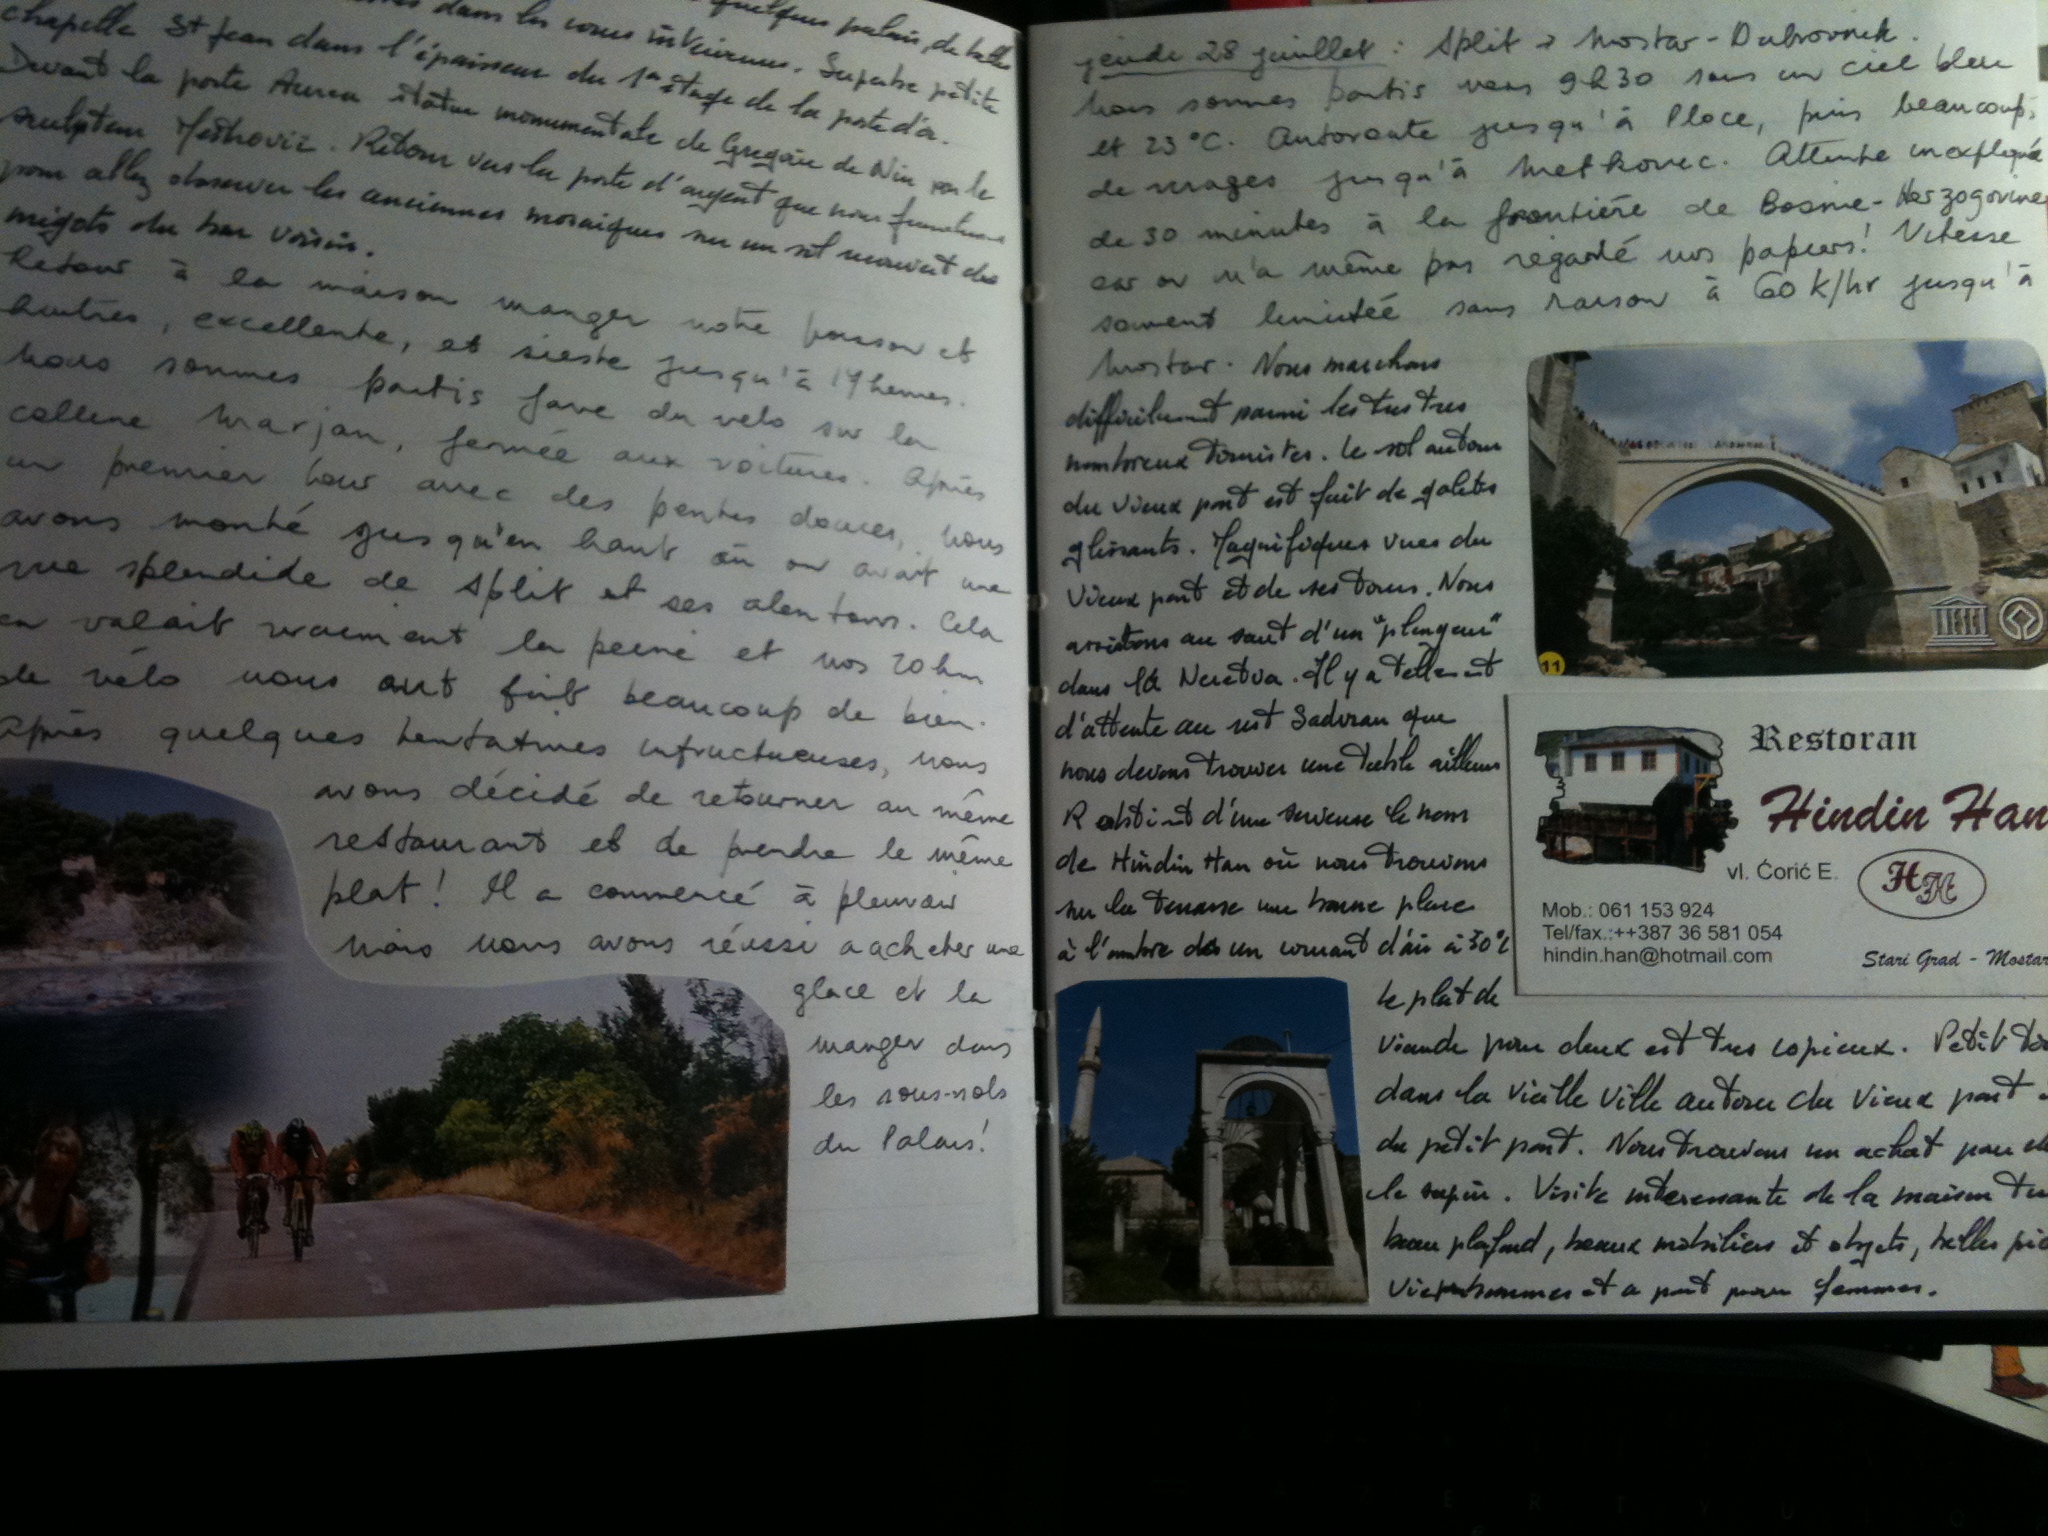 quelques palais, de belles
dans les cours intérieures. Superbe petite
chapelle St Jean dans l'épaisseur du 1er étage de la porte d'or.
Devant la porte Aurea statue monumentale de Grégoire de Nin par le
sculpteur Mestrovic. Retour vers la porte d'argent que nous
pour aller observer les anciennes mosaïques sur un sol recouvert de
mégots du bar voisin.
Retour à la maison manger notre poisson et
huîtres, excellente, et sieste jusqu'à 17 heures.
Nous sommes partis faire du vélo sur la
colline Marjan, fermée aux voitures. Après
un premier tour avec des pentes douces, nous
avons monté jusqu'en haut où on avait une
vue splendide de Split et ses alentours. Cela
en valait vraiment la peine et nos 20 km
de vélo nous ont fait beaucoup de bien.
Après quelques tentatives infructueuses, nous
avons décidé de retourner au même
restaurant et de prendre le même
plat! Il a commencé à pleuvoir
mais nous avons réussi a acheter une
glace et la
manger dans
les sous-sols
du Palais!
jeudi 28 juillet : Split → Mostar - Dubrovnik.
Nous sommes partis vers 9h30 sous un ciel bleu
et 23°C. Autoroute jusqu'à Ploce, puis beaucoup
de virages jusqu'à Metkovec. Attente inexpliquée
de 30 minutes à la frontière de Bosnie-Herzogovine
car on n'a même pas regardé nos papiers! Vitesse
souvent limitée sans raison à 60 k/hr jusqu'à
Mostar. Nous marchons
difficilement parmi les très très
nombreux touristes. Le sol autour
du vieux pont est fait de galets
glissants. Magnifiques vues du
vieux pont et de ses tours. Nous
assistons au saut d'un "plongeur"
dans la Neretva. Il y a tellement
d'attente au rest Sadrvan que
nous devons trouver une table ailleurs
d'une serveuse le nom
de Hindin Han où nous trouvons
sur la terrasse une bonne place
à l'ombre dans un courant d'air à 30°C
le plat de
viande pour deux est très copieux. Petit
dans la vieille ville autour du vieux pont
du petit pont. Nous trouvons un achat pour
le sapin. Visite interessante de la maison
beau plafond, beaux mobiliers et objets, belles
hommes et a part pour femmes.
11
Restoran
Hindin Han
vl. Ćorić E.
HH
Mob.: 061 153 924
Tel/fax.:++387 36 581 054
hindin.han@hotmail.com
Stari Grad - Mostar